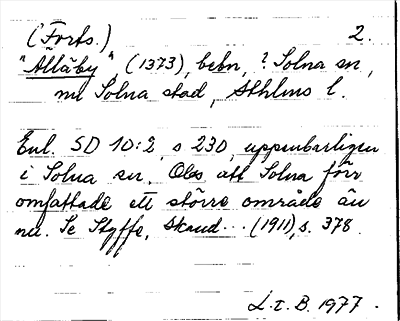 (Forts.) 2.
"Ållåby", (1373), bebn, ? Solna sn,
nu Solna stad, Sthlms l.
Enl. SD 10:2, s 230, uppenbarligen
i Solna sn. Obs att Solna förr
omfattade ett större område än
nu. Se Styffe, Skand... (1911), s. 378.
L.E.B. 1977.